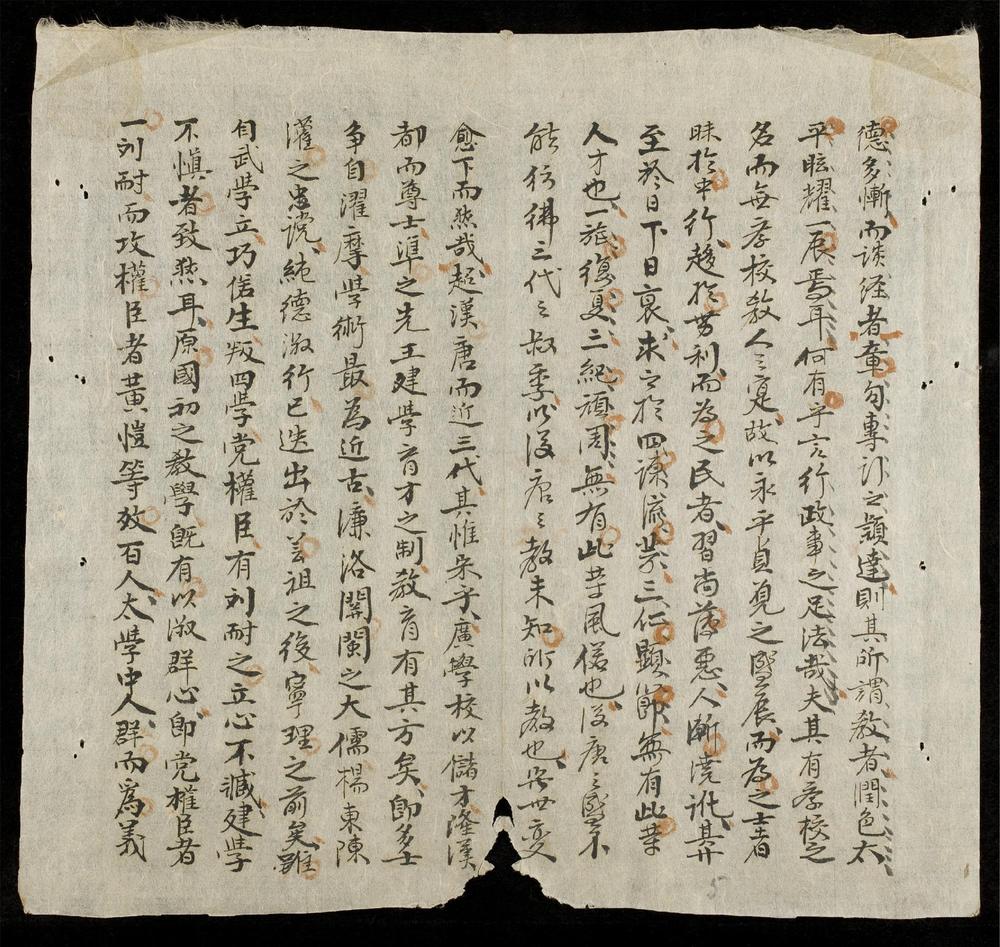 德多慚而談經者章句專訂之穎達則其所謂教者潤色太
平眩耀一辰焉耳何有乎言行政事之足法哉夫其有斈校之
名而無斈校教人之寔故以永平貞覌之盛辰而為之士者
昧於中行趍於势利而為之民者習尚薄惡人漸澆訛其
至於日下日衰求之於四諫流芳三仁顯節無有此苐
人才也一旅復夏三紀頑周無有此苐風俗也汉唐之盛不
能彷彿三代之叔季以汉唐之教未知所以教也世变
愈下而然哉超漢唐而近三代其惟宋乎廣學校以儲才隆漢
都而尊士準之先王建學育才之制教育有其方矣卽多士
争自濯摩學術最為近古濂洛關閩之大儒楊東陳
灌之忠讜純德淑行已迭出於芸祖之後寧理之前矣雖
自武學立巧借生叛四學党權臣有刘耐之立心不臧建學
不慎者致然耳原國初之教學旣有以淑群心卽党權臣者
一刘耐而攻權臣者黃愷等效百人太學中人群而為義
5